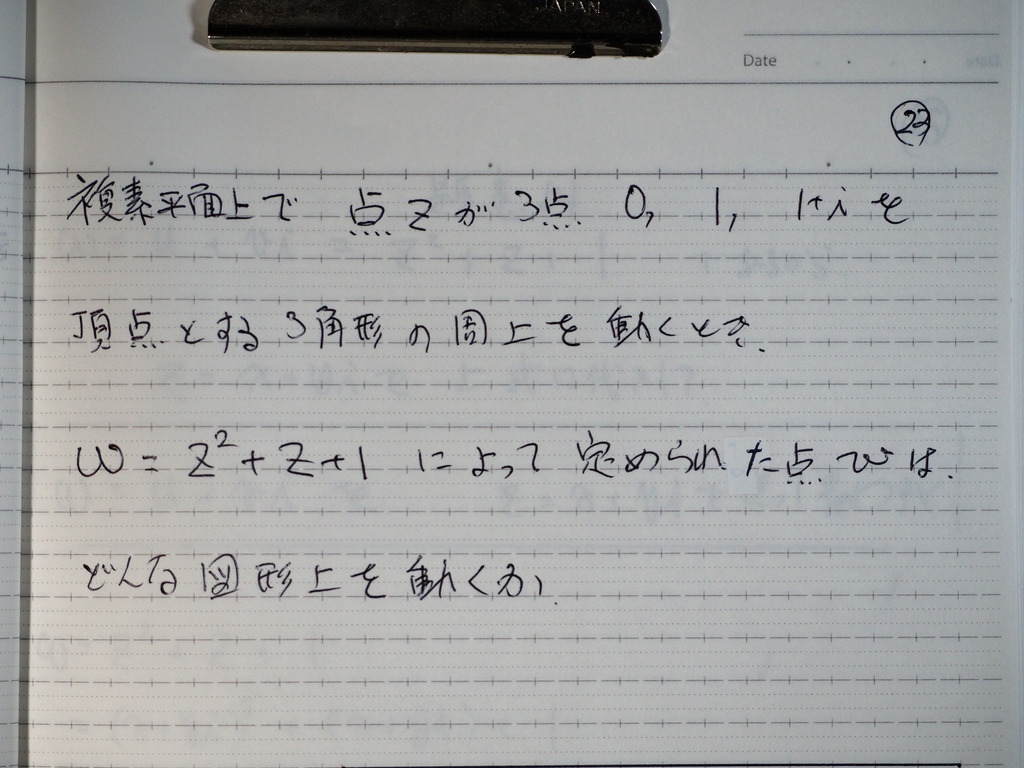 JAPAN
Date
23
複素平面上で 点zが3点 0, 1, 1+iを
頂点とする3角形の周上を動くとき.
ω = z²+z+1 によって定められた点wは.
どんな図形上を動くか.